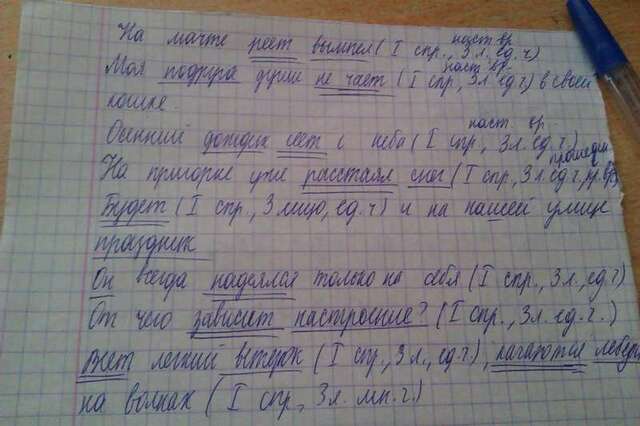 наст. вр.
На мачте реет вымпел (I спр., 3 л. ед. ч)
наст. вр.
Моя подруга души не чает (I спр., 3 л. ед. ч) в своей
кошке.
наст. вр.
Осенний дождик сеет с неба (I спр., 3 л. ед. ч)
прошедш.
На пригорке уже расстаял снег (I спр., 3 л. ед. ч, пр. вр)
Будет (I спр., 3 лицо, ед. ч) и на нашей улице
праздник
Он всегда надеялся только на себя (I спр., 3 л., ед. ч)
От чего зависит настроение? (I спр., 3 л. ед. ч.)
Веет легкий ветерок (I спр., 3 л., ед. ч), качаются лебеди
на волнах (I спр., 3 л. мн. ч.)